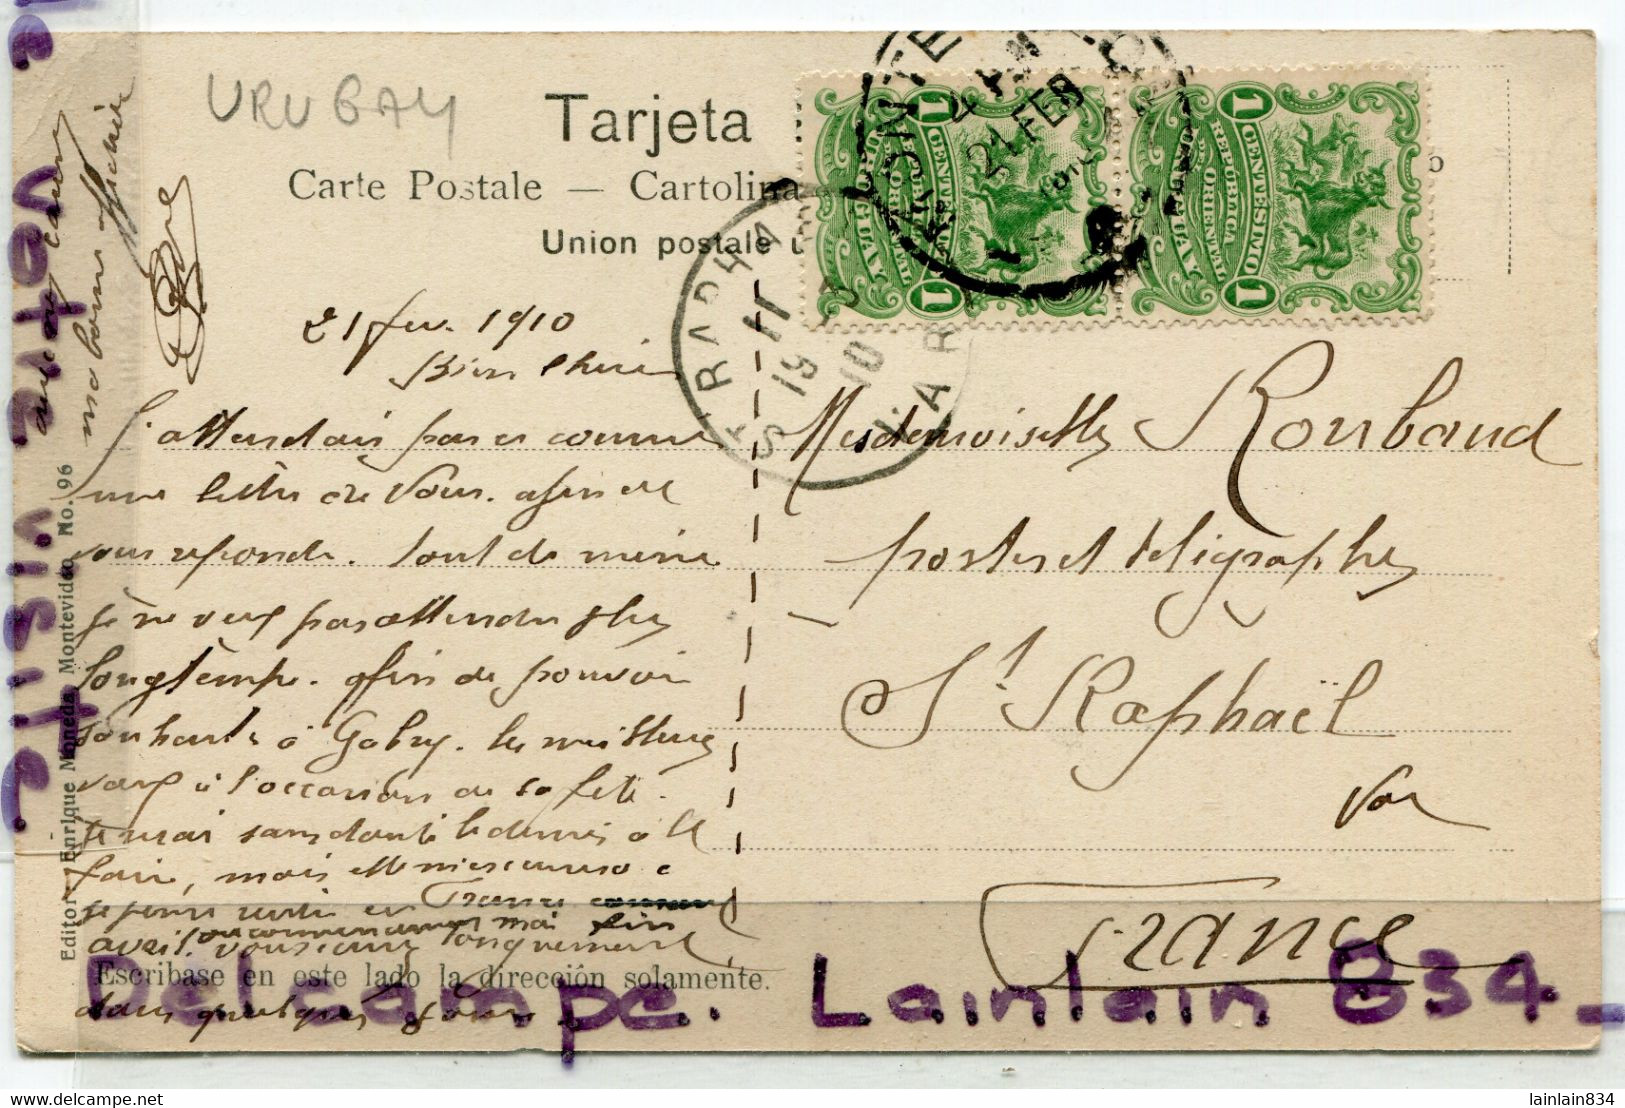 URUGAY
Tarjeta
Carte Postale — Cartolina
Union postale u
1 CENTESIMO 1
REPUBLICA
ORIENTAL
1 CENTESIMO 1
REPUBLICA
ORIENTAL
MONTE
21 FEB
ST RAPHA
11
19
10
VAR
21 fev. 1910
Bien chérie
J'attendais par ce courrier
une lettre de Vous. afin de
vous repondre. tout de même
je ne veux pas attendre plus
longtèmps. afin de pouvoir
souhaiter à Gaby. les meilleurs
vœux à l'occasion de sa fete.
je serai sans doute le dernier à le
faire, mais elle m'excusera
je pense rentré en France fin
avril. ou commencement mai
vous écrirez longuement
dans quelques jours
ma bonne
Mesdemoiselles Roubaud
postes et télégraphes
St Raphaël
Var
France
Escribase en este lado la dirección solamente.
Editor: Enrique Moneda, Montevideo No. 96
Delcampe. Lainlain 834_
lainlain834